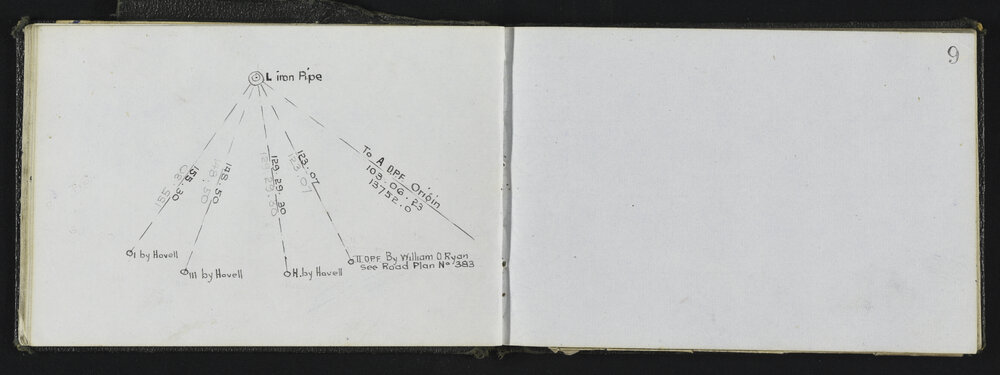 9
L iron Pipe
155.30
148.50
129.29.30
123.07
To A O.P.F. Origin
103.06.23
13752.0
I by Hovell
III by Hovell
H. by Hovell
II O.P.F By William O Ryan
See Road Plan No 383